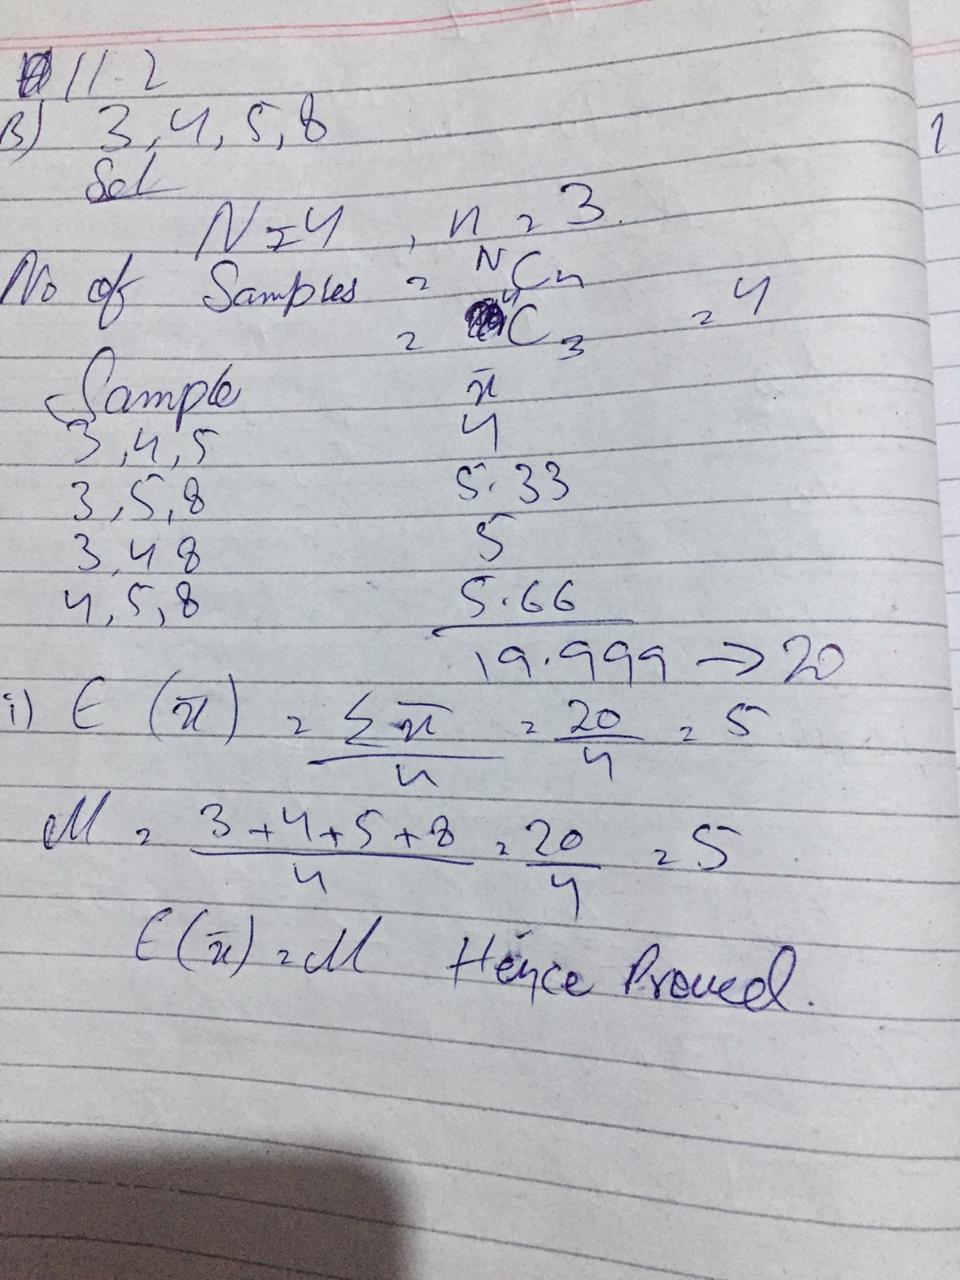 11.2
B) 3,4,5,8
Sol
N=4, n=3.
No of Samples = NCn
= 4C3 = 4
Sample x̄
3,4,5 4
3,5,8 5.33
3,4 8 5
4,5,8 5.66
19.999 → 20
i) E (x̄) = Σx̄/n = 20/4 = 5
M = 3+4+5+8/4 = 20/4 = 5
E(x̄) = M Hence Proved.